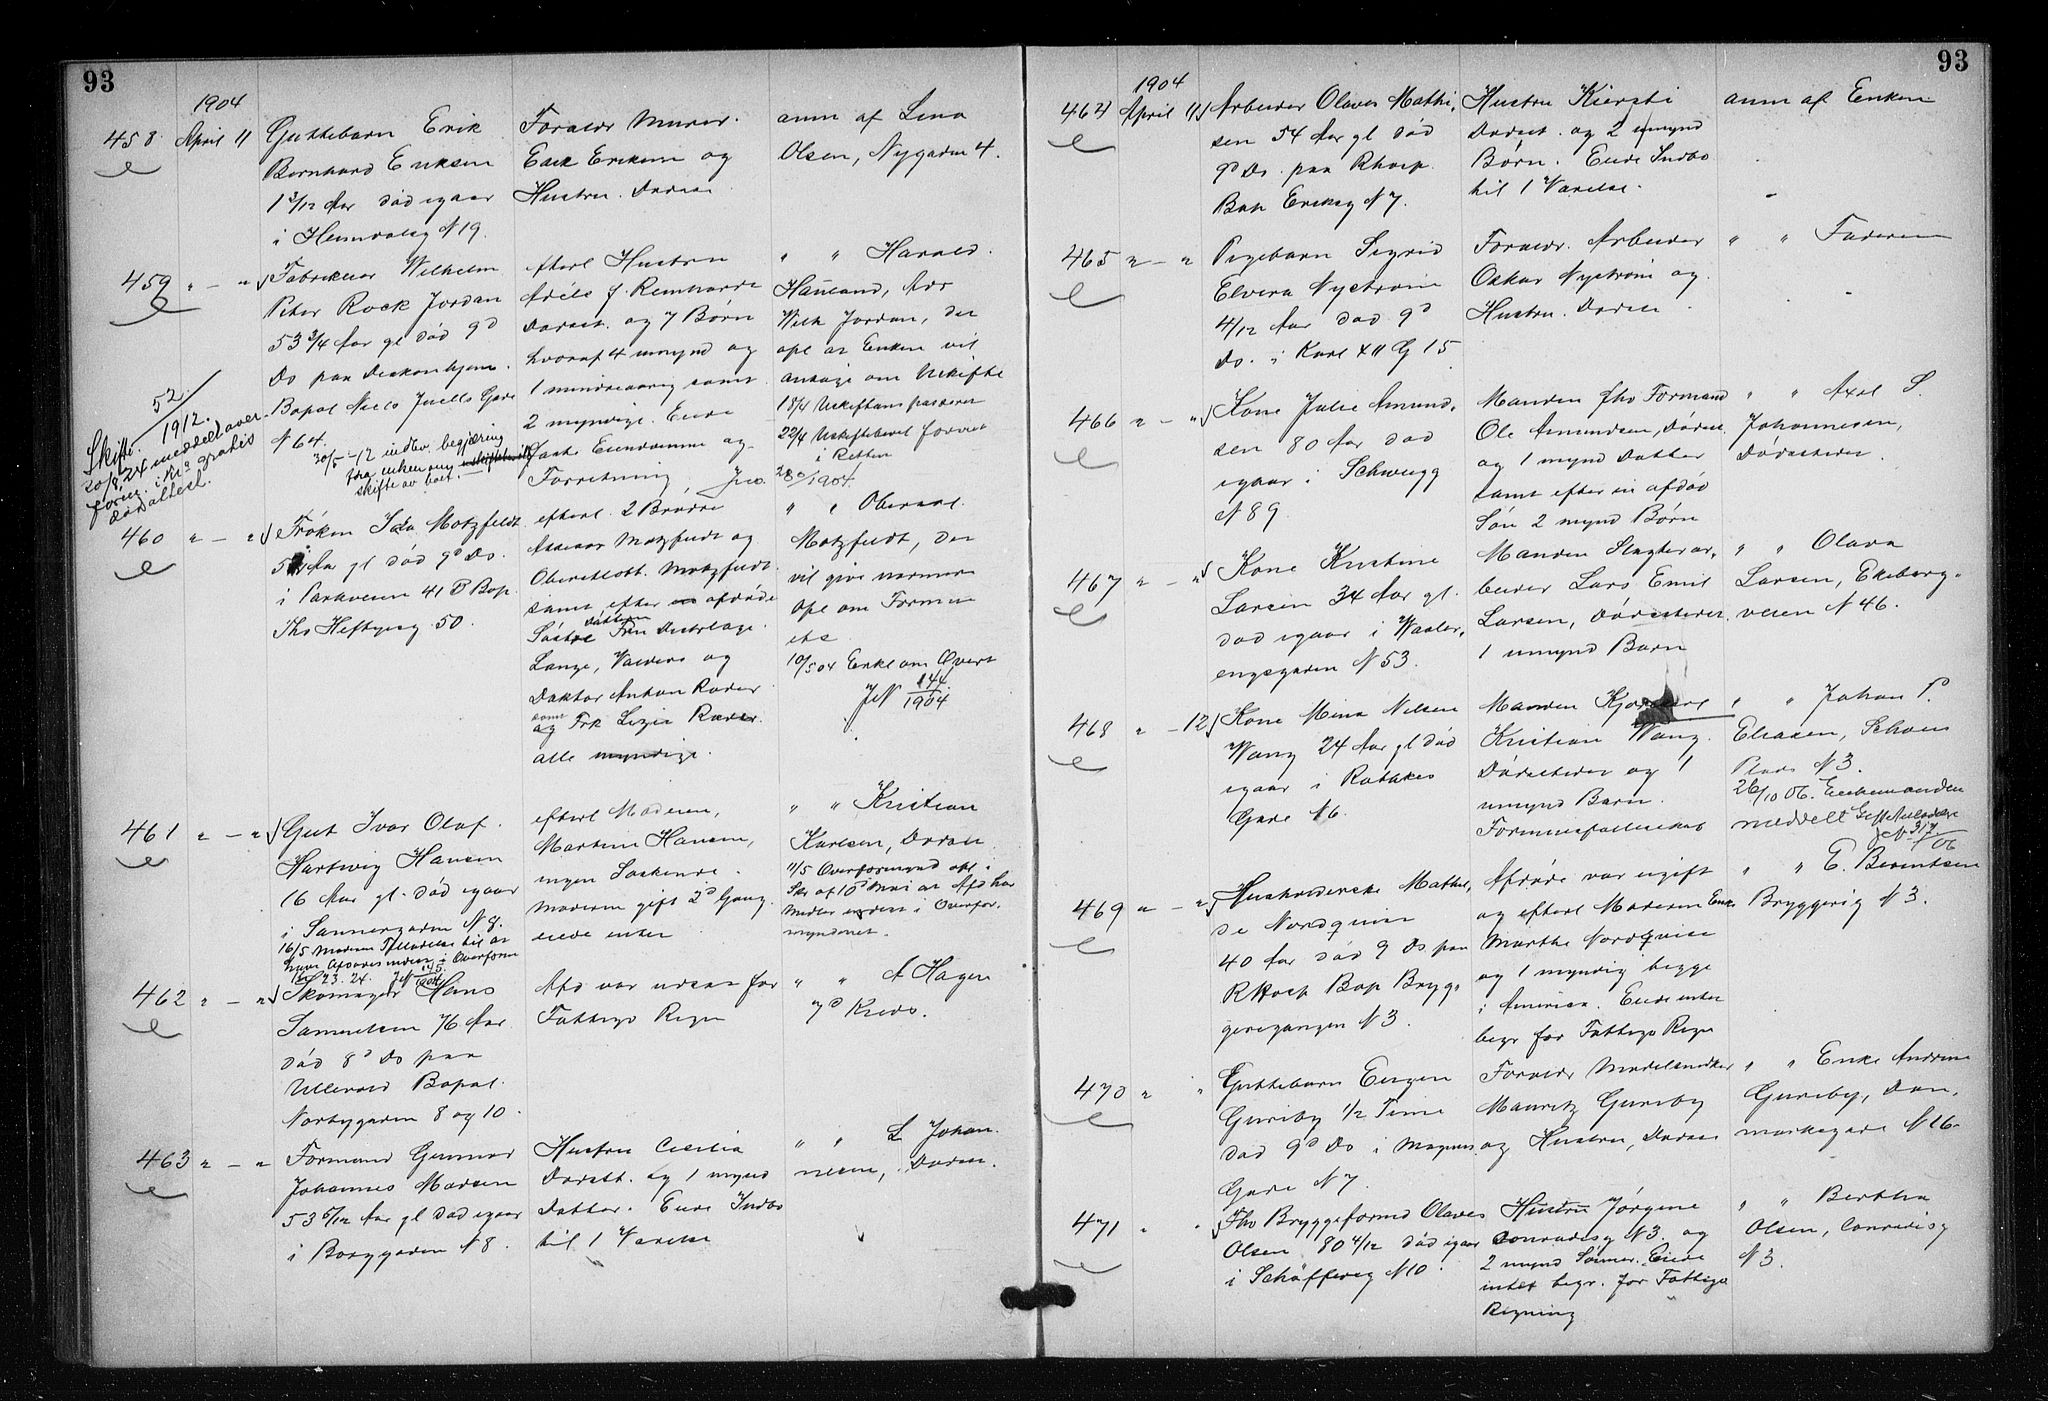 93
1904
458 April 11 Guttebarn Erik
Bernhard Eriksen
1 3/12 Aar død igaar
i Heimdalsg N 19.
Foræld. Murer
Erik Eriksen og
Hustru. Dødsa
anm af Lina
Olsen, Nygaden 4.
459 " - " Fabrikeier Wilhelm
Peter Rock Jordan
53 3/4 Aar gl død 9d
Ds paa Diakonhjem.
Bopæl Niels Juells Gade
N 64.
30/5 -12 indlev. begjæring
fra enken om
skifte av boet.
Skifte 52/1912.
20/8 24 meddelt over
gratis
efterl Hustru
Adéle f. Reinhardt
Dødsst. og 7 Børn
hvoraf 4 umynd og
1 mindreaarig samt
2 myndige. Eiede
faste Eiendomme og
Forretning
" " Harald
Haaland, Adr
Wilh Jordan, der
opl at Enken vil
ansøge om Uskifte
18/4 Uskifteans passeret
22/4 Uskiftebevil forevist
i Retten
280/1904.
460 " - " Frøken Ida Motzfeldt
Aar gl død 9d Ds.
i Parkveien 41 B Bop.
Ths Heftyesg 50.
efterl. 2 Brødre
Assessor Motzfeldt og
Oberstløit. Motzfeldt
samt efter afdøde
Søstre Døttrene
Lange, og
Doktor Anton Ræder
samt
og Frk Lizzie Ræder.
alle myndige.
" " Oberstl.
Motzfeldt, der
vil give nærmere
opl om Formue
etc
10/5 04 Erkl om Overt
JN 144/1904.
461 " - " Gut Ivar Olaf
Hartwig Hansen
16 Aar gl. død igaar
i Sannergaden N 9.
efterl Moderen,
Martine Hansen,
ingen Søskende.
Moderen gift 2d Gang.
eiede intet
" " Kristian
Karlsen, Dødsst
11/5 Overformynd opl i
Skr af 10d Mai at Afd har
Midler indest i Overfor-
mynderiet.
462 " - " Skomager Hans
Samuelsen 76 Aar
død 8d Ds paa
Ullevold Bopæl.
Norbygaden 8 og 10.
Afd var udsat for
Fattigv Regn
" " A Hagen
7d Kreds.
463 " - " Formand Gunnar
Johannes Madsen
53 5/12 Aar gl død igaar
i Borggaden N 8.
Hustru Cecilia
Dødsst. og 1 mynd
Datter. Eiede Indbo
til 1 Værelse
" " L Johan-
nesen, Dødsst.
93
1904
464 April 11 Arbeider Olaves Mathi-
sen 54 Aar gl død
9d Ds. paa Rhosp.
Bop Eriksg N 7.
Hustru Kiersti
Dødsst. og 2 umynd
Børn. Eiede Indbo
til 1 Værelse.
anm af Enken
465 " - " Pigebarn Sigrid
Elvira Nystrøm
4/12 Aar død 9d
Ds. i Karl XII G 15.
Foræld. Arbeider
Oskar Nystrøm og
Hustru. Dødsst.
" " Faderen
466 " - " Kone Julie Amund-
sen 80 Aar død
igaar i Schweigg
N 89.
Manden fhv Formand
Ole Amundsen, Dødsst
og 1 mynd Datter
samt efter en afdød
Søn 2 mynd Børn
" " Axel S.
Johannesen,
Dødsstedet.
467 " - " Kone Kristine
Larsen 34 Aar gl.
død igaar i Waaler-
engsgaden N 53.
Manden Slagterar-
beider Lars Emil
Larsen, Dødsstedet.
1 umynd Barn
" " Olava
Larsen, Ekeberg-
veien N 46.
468 " - 12 Kone Mina Nilsen
Wang 24 Aar gl død
igaar i Rathkes
Gade N 6.
Manden
Kristian Wang.
Dødsstedet og 1
umynd Barn.
Formuesfællesskab
" " Johan P.
Eliasen, Schous
Plads N 3.
26/10 06. Enkemanden
meddelt
JN 317/06
469 " - " Husholderske Mathil-
de Nordqvist
40 Aar død 9 Ds paa
RHosp Bop Bryg-
gerigangen N 3.
Afdøde var ugift
og efterl Moderen Enke
Marthe Nordqvist
og 1 myndig begge
i Amerika. Eiede intet
begr for Fattigv Regn
" " E. Berentsen
Bryggerig N 3.
470 " " Guttebarn Eugen
Guriby 1/2 Time
død 9d Ds i Mogens
Gade N 7.
Foræld Modelsnedker
Mauritz Guriby
og Hustru, Dødsst
" " Enke Andrine
Guriby, Dan-
marksgade N 16.
471 " " Fhv Bryggeformd Olaves
Olsen 80 4/12 død igaar
i Schäffersg N 10.
Hustru Jørgine
Conradisg N 3. og
2 mynd Sønner. Eiede
intet begr. for Fattigv
Regning
" " Bertha
Olsen, Conradisg
N 3.